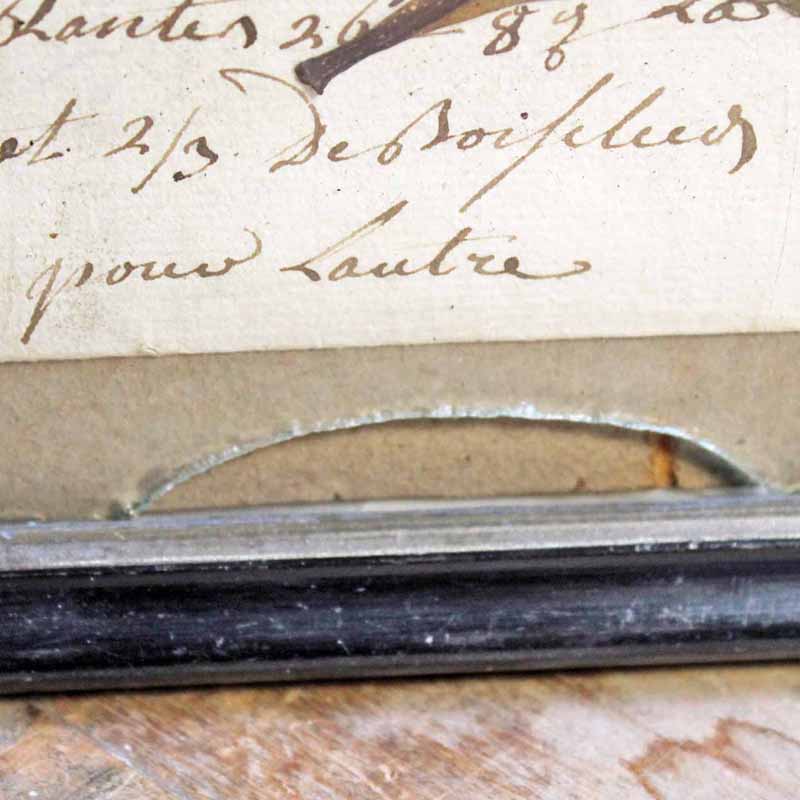 Plantes 26 89 La
et 2/3 De Boisseleeds
pour Lautre